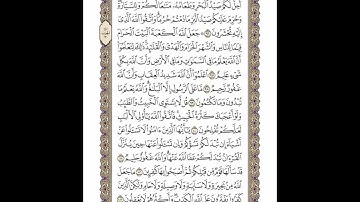 أُحِلَّ لَكُمْ صَيْدُ الْبَحْرِ وَطَعَامُهُ مَتَاعًا لَّكُمْ وَلِلسَّيَّارَةِ
وَحُرِّمَ عَلَيْكُمْ صَيْدُ الْبَرِّ مَا دُمْتُمْ حُرُمًا وَاتَّقُوا اللَّهَ الَّذِي
إِلَيْهِ تُحْشَرُونَ ٩٦ جَعَلَ اللَّهُ الْكَعْبَةَ الْبَيْتَ الْحَرَامَ
قِيَامًا لِّلنَّاسِ وَالشَّهْرَ الْحَرَامَ وَالْهَدْيَ وَالْقَلَائِدَ ذَٰلِكَ لِتَعْلَمُوا
أَنَّ اللَّهَ يَعْلَمُ مَا فِي السَّمَاوَاتِ وَمَا فِي الْأَرْضِ وَأَنَّ اللَّهَ بِكُلِّ
شَيْءٍ عَلِيمٌ ٩٧ اعْلَمُوا أَنَّ اللَّهَ شَدِيدُ الْعِقَابِ وَأَنَّ اللَّهَ
غَفُورٌ رَّحِيمٌ ٩٨ مَّا عَلَى الرَّسُولِ إِلَّا الْبَلَاغُ وَاللَّهُ يَعْلَمُ مَا
تُبْدُونَ وَمَا تَكْتُمُونَ ٩٩ قُل لَّا يَسْتَوِي الْخَبِيثُ وَالطَّيِّبُ
وَلَوْ أَعْجَبَكَ كَثْرَةُ الْخَبِيثِ فَاتَّقُوا اللَّهَ يَا أُولِي الْأَلْبَابِ
لَعَلَّكُمْ تُفْلِحُونَ ١٠٠ يَا أَيُّهَا الَّذِينَ آمَنُوا لَا تَسْأَلُوا عَنْ
أَشْيَاءَ إِن تُبْدَ لَكُمْ تَسُؤْكُمْ وَإِن تَسْأَلُوا عَنْهَا حِينَ يُنَزَّلُ
الْقُرْآنُ تُبْدَ لَكُمْ عَفَا اللَّهُ عَنْهَا وَاللَّهُ غَفُورٌ حَلِيمٌ ١٠١
قَدْ سَأَلَهَا قَوْمٌ مِّن قَبْلِكُمْ ثُمَّ أَصْبَحُوا بِهَا كَافِرِينَ ١٠٢ مَا جَعَلَ
اللَّهُ مِن بَحِيرَةٍ وَلَا سَائِبَةٍ وَلَا وَصِيلَةٍ وَلَا حَامٍ وَلَٰكِنَّ الَّذِينَ
كَفَرُوا يَفْتَرُونَ عَلَى اللَّهِ الْكَذِبَ وَأَكْثَرُهُمْ لَا يَعْقِلُونَ ١٠٣